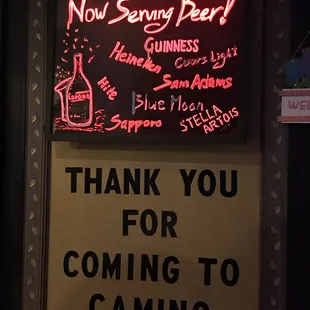 Now Serving Beer!
GUINNESS
Heineken
Coors Light
Sam Adams
Hite
Blue Moon
Sapporo
STELLA
ARTOIS
WEL
THANK YOU
FOR
COMING TO
GAMING